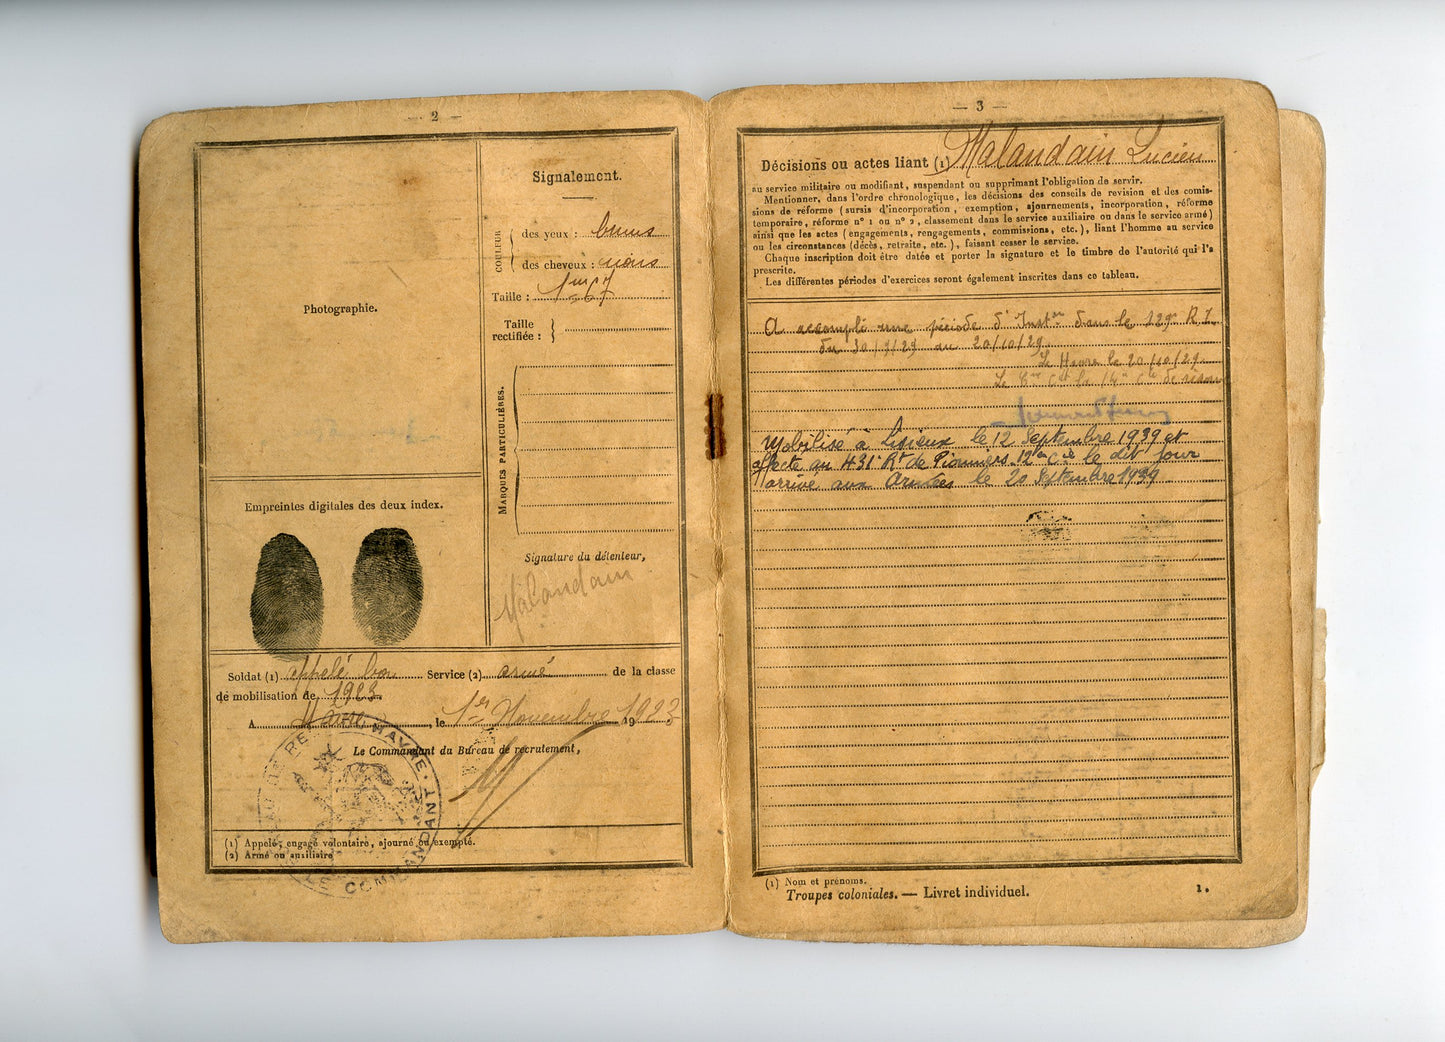 — 2 —
Signalement.
COULEUR
des yeux : bruns
des cheveux : noirs
Taille : 1m67
Taille
rectifiée :
MARQUES PARTICULIÈRES.
Photographie.
Empreintes digitales des deux index.
Signature du détenteur,
Malandain
Soldat (1) appelé bon Service (2) armé de la classe
de mobilisation de 1923
A Havre, le 1er Novembre 1923
Le Commandant du Bureau de recrutement,
HAVRE
COMMANDANT
(1) Appelé, engagé volontaire, ajourné ou exempté.
(2) Armé ou auxiliaire
— 3 —
Décisions ou actes liant (1) Malandain Lucien
au service militaire ou modifiant, suspendant ou supprimant l'obligation de servir.
Mentionner, dans l'ordre chronologique, les décisions des conseils de revision et des comis-
sions de réforme (sursis d'incorporation, exemption, ajournements, incorporation, réforme
temporaire, réforme n° 1 ou n° 2, classement dans le service auxiliaire ou dans le service armé)
ainsi que les actes (engagements, rengagements, commissions, etc.), liant l'homme au service
ou les circonstances (décès, retraite, etc.), faisant cesser le service.
Chaque inscription doit être datée et porter la signature et le timbre de l'autorité qui l'a
prescrite.
Les différentes périodes d'exercices seront également inscrites dans ce tableau.
A accompli une période d'Inston dans le 129e R I
du 30/9/29 au 20/10/29
Le Havre le 20/10/29
Mobilisé à Lisieux le 12 Septembre 1939 et
affecté au 431e Rt de Pionniers 12e Cie le dit jour
arrivé aux Armées le 20 Septembre 1939
(1) Nom et prénoms.
Troupes coloniales. — Livret individuel.
1.